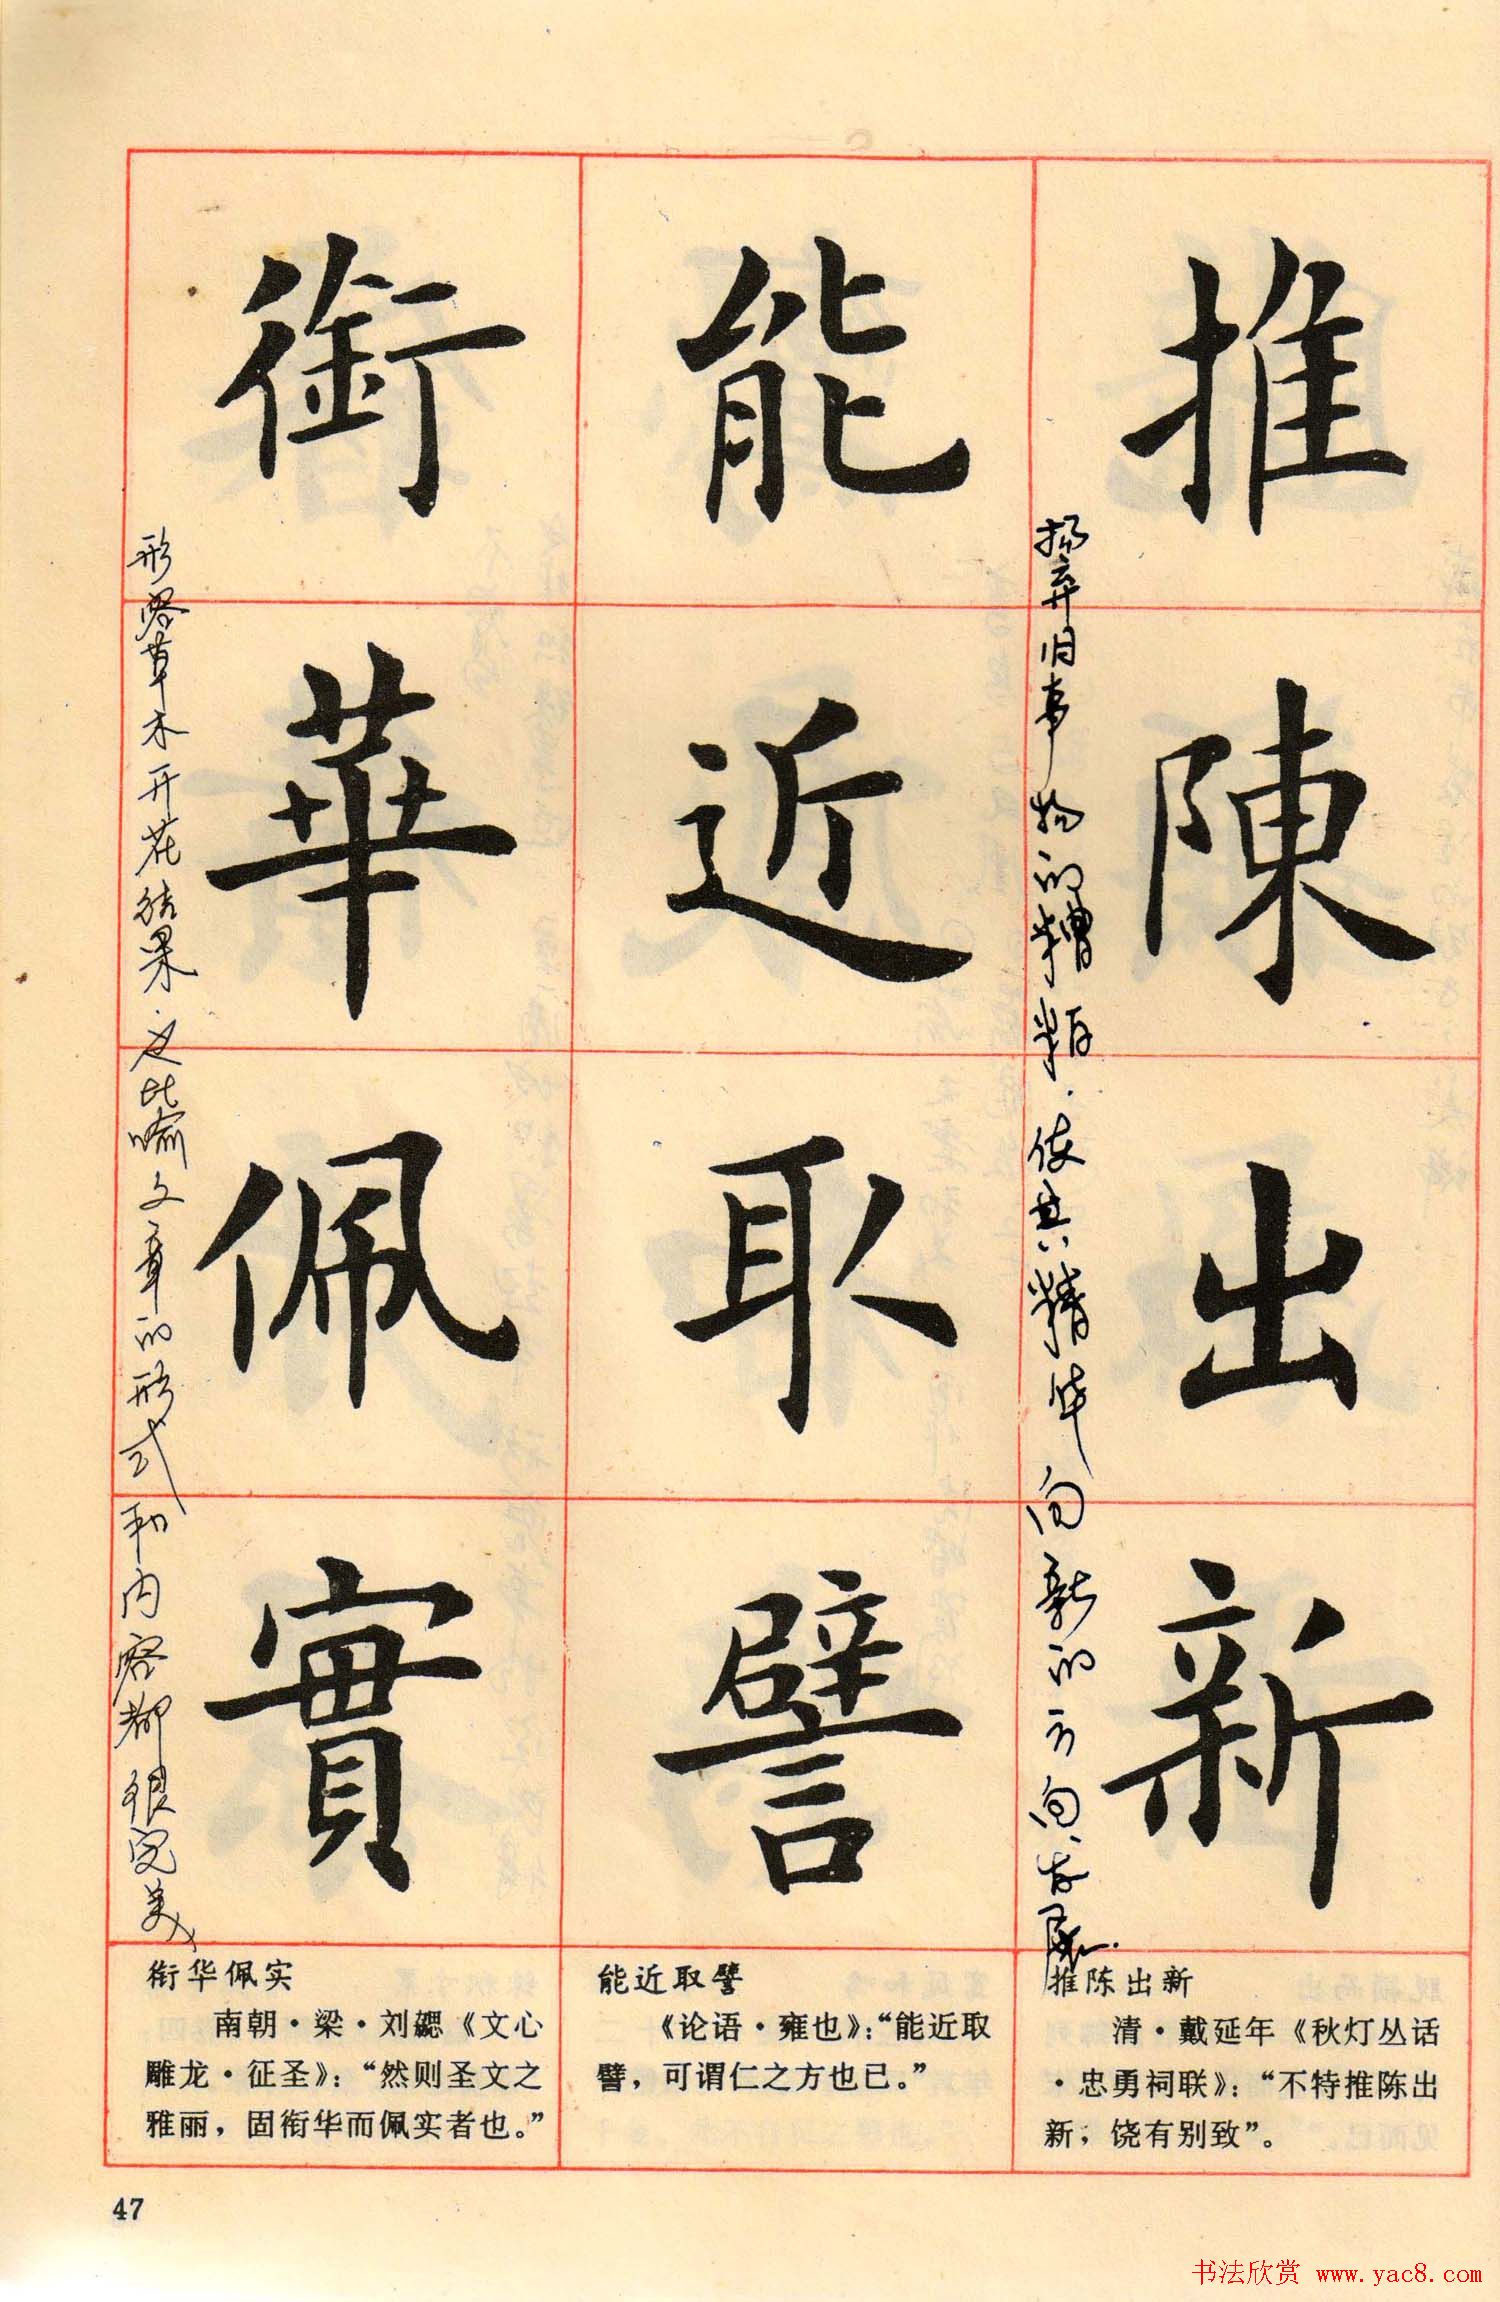 推陳出新
能近取譬
銜華佩實
扬弃旧事物的糟粕.使其精华向新的方向发展.
形容草木开花结果.又比喻文章的形式和内容都很完美
推陈出新
清·戴延年《秋灯丛话
·忠勇祠联》：“不特推陈出
新，饶有别致”。
能近取譬
《论语·雍也》：“能近取
譬，可谓仁之方也已。”
衔华佩实
南朝·梁·刘勰《文心
雕龙·征圣》：“然则圣文之
雅丽，固衔华而佩实者也。”
47
书法欣赏 www.yac8.com